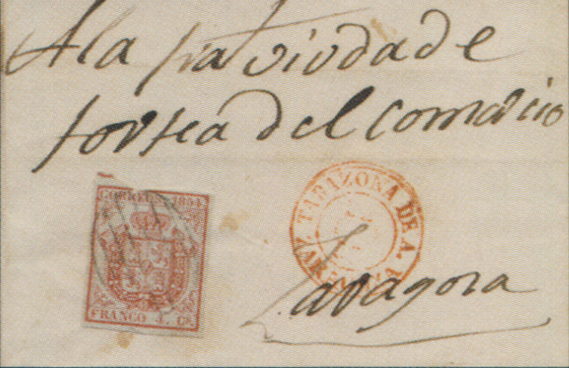 A la sra viuda de
fortea del comercio
CORREOS 1854
FRANCO
TARAZONA DE A.
Zaragoza